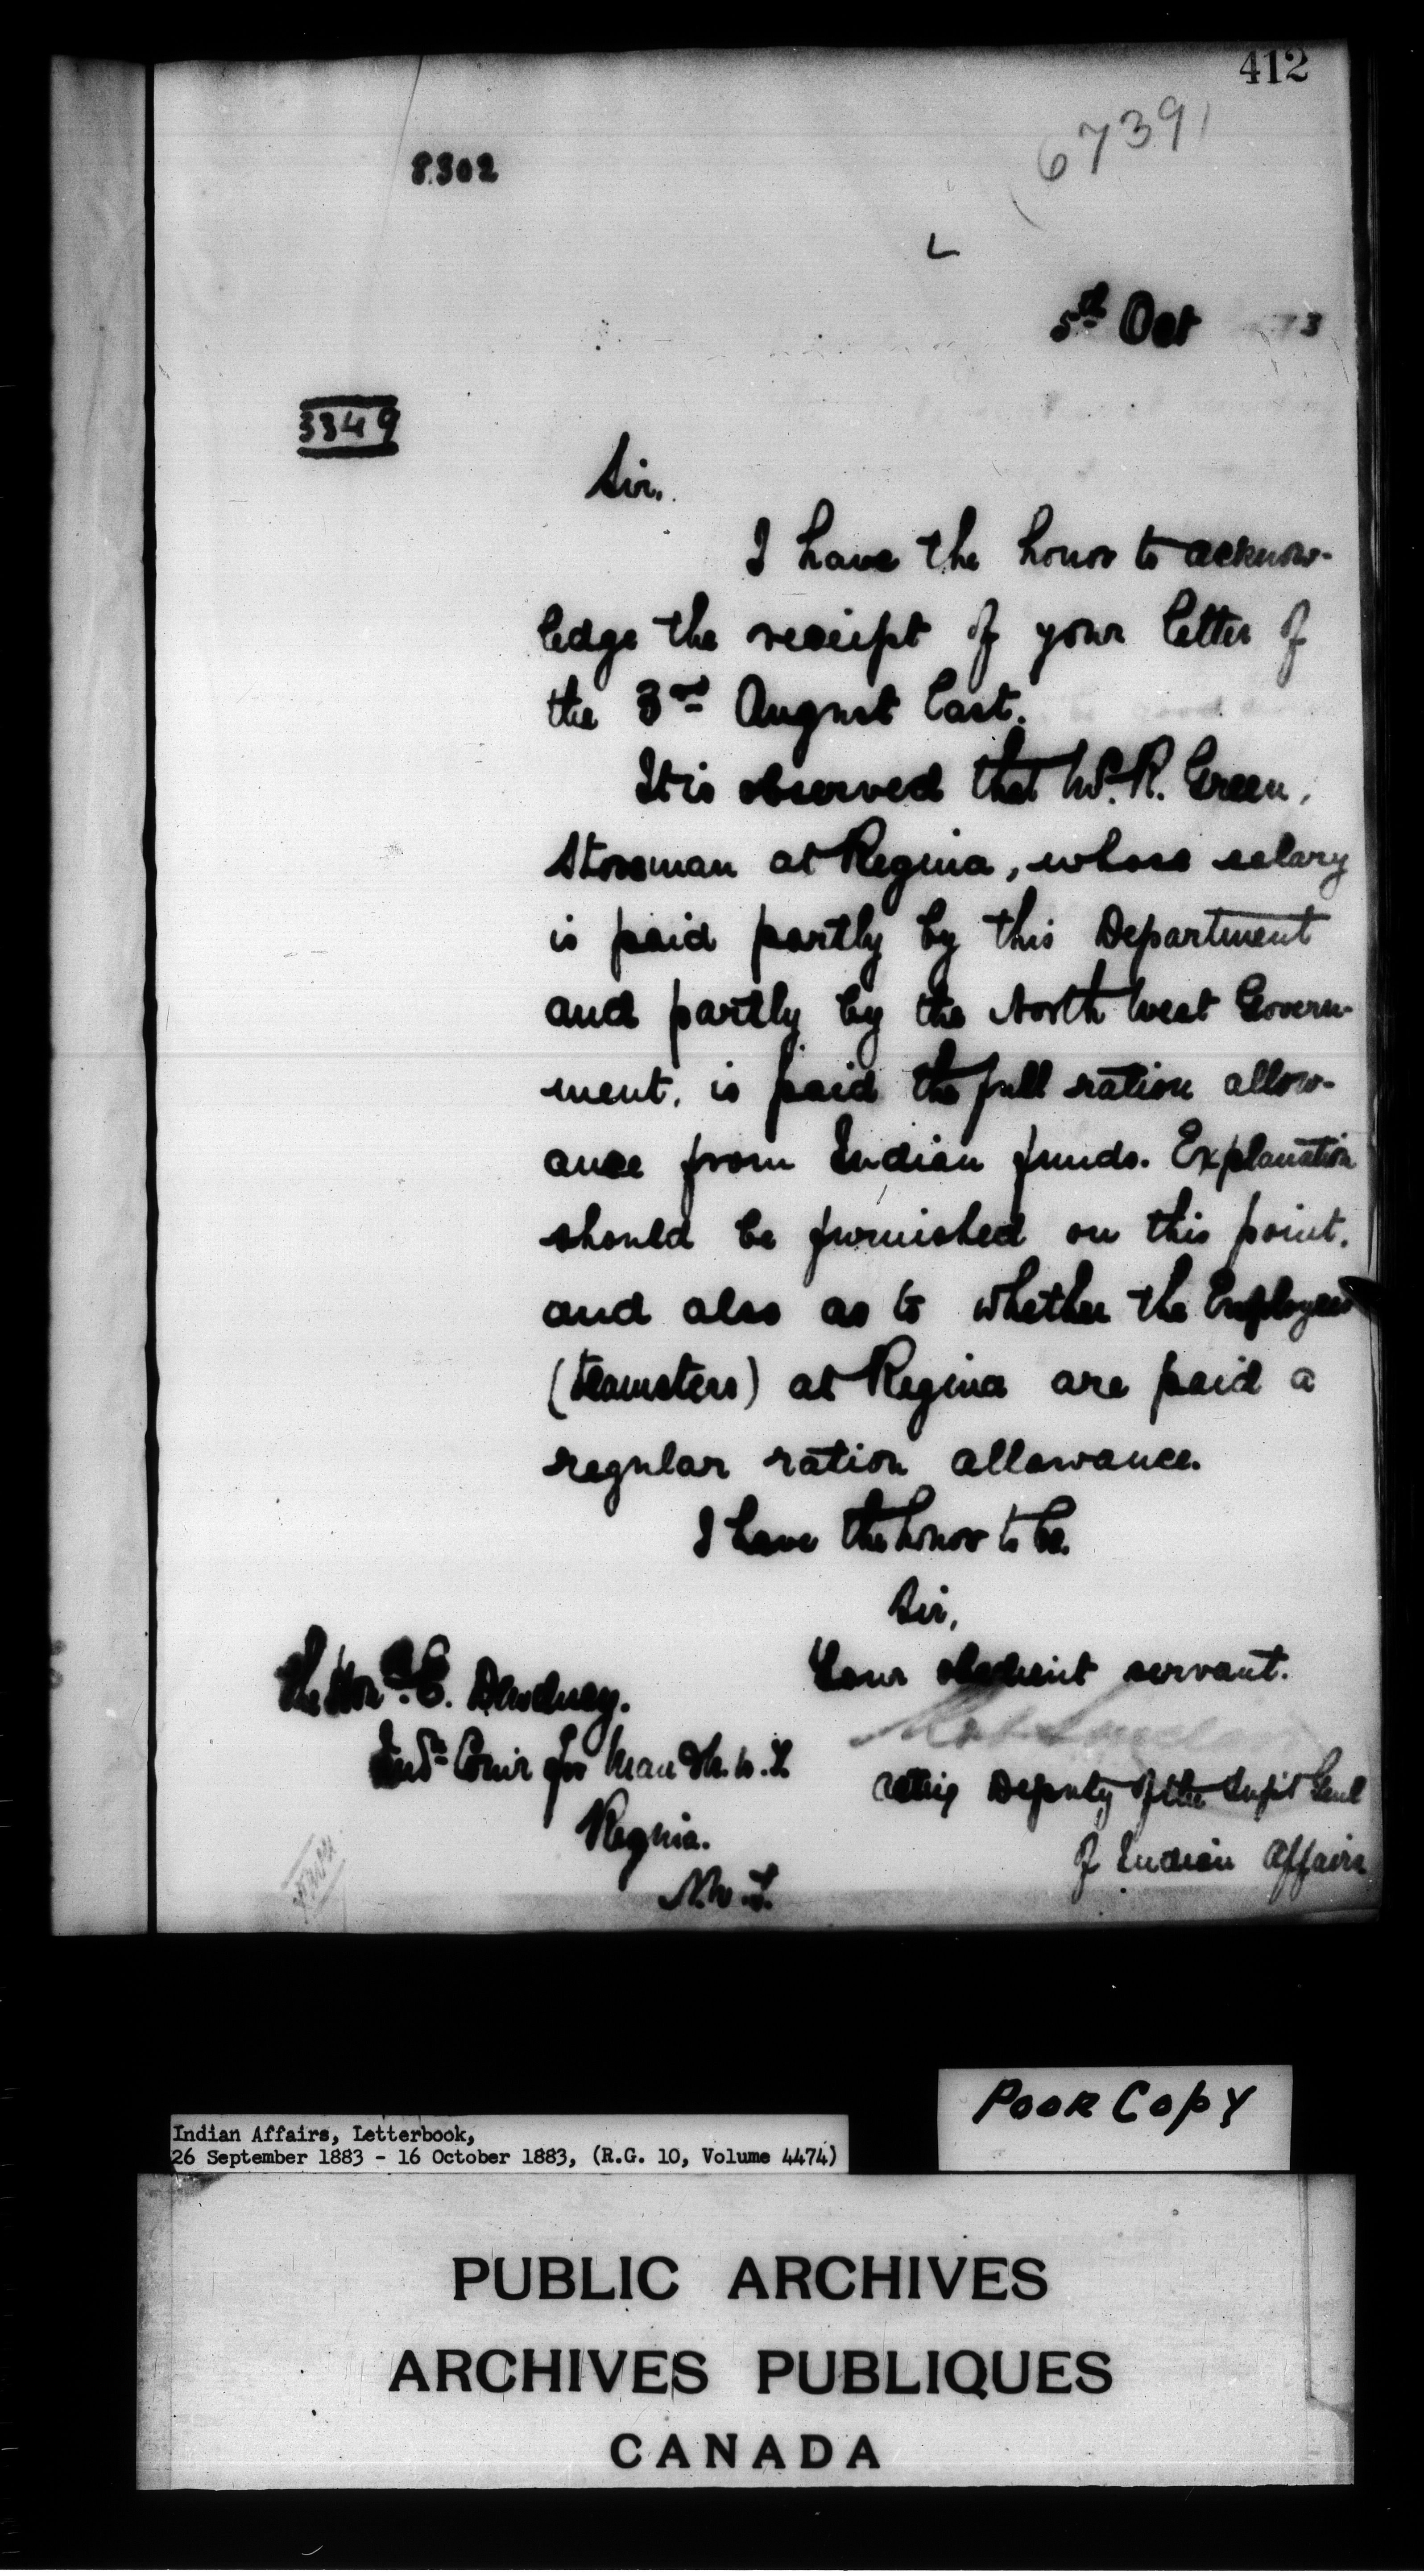 412
67391
8302
L
5th Oct 3
3349
Sir,
I have the honor to acknow-
ledge the receipt of your letter of
the 3rd August last.
It is observed that W. R. Green,
Storeman at Regina, whose salary
is paid partly by this Department
and partly by the North West Govern-
ment, is paid the full ration allow-
ance from Indian funds. Explanation
should be furnished on this point,
and also as to whether the Employees
(teamsters) at Regina are paid a
regular ration allowance.
I have the honor to be
Sir,
Your obedient servant.
The Hon. E. Dewdney.
Indn Comr for Man & N.W.T.
Acting Deputy of the Supt Genl
Regina.
of Indian Affairs
N.W.T.
Poor Copy
Indian Affairs, Letterbook,
26 September 1883 - 16 October 1883, (R.G. 10, Volume 4474)
PUBLIC ARCHIVES
ARCHIVES PUBLIQUES
CANADA